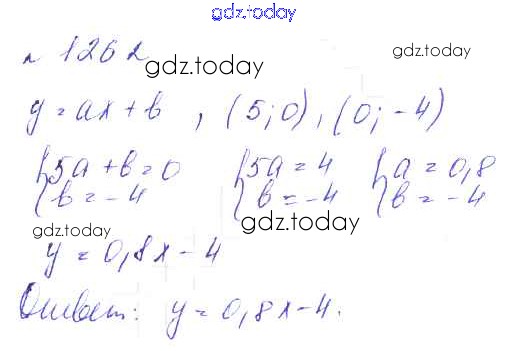 gdz.today
№ 1262
gdz.today
gdz.today
y = ax + b , (5;0), (0; -4)
{5a + b = 0 {5a = 4 {a = 0,8
{b = -4 {b = -4 {b = -4
gdz.today
gdz.today
y = 0,8x - 4
Ответ: y = 0,8x - 4.